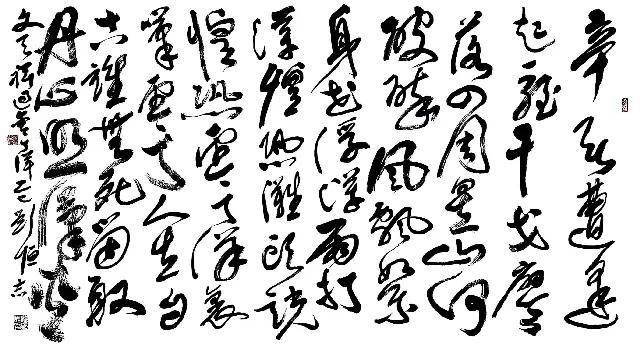 辛苦遭逢
起一經干戈寥
落四周星山河
破碎風飄絮
身世浮沉雨打
萍惶恐灘頭說
惶恐零丁洋裏
嘆零丁人生自
古誰無死留取
丹心照汗青
文天祥過零丁洋 恒志